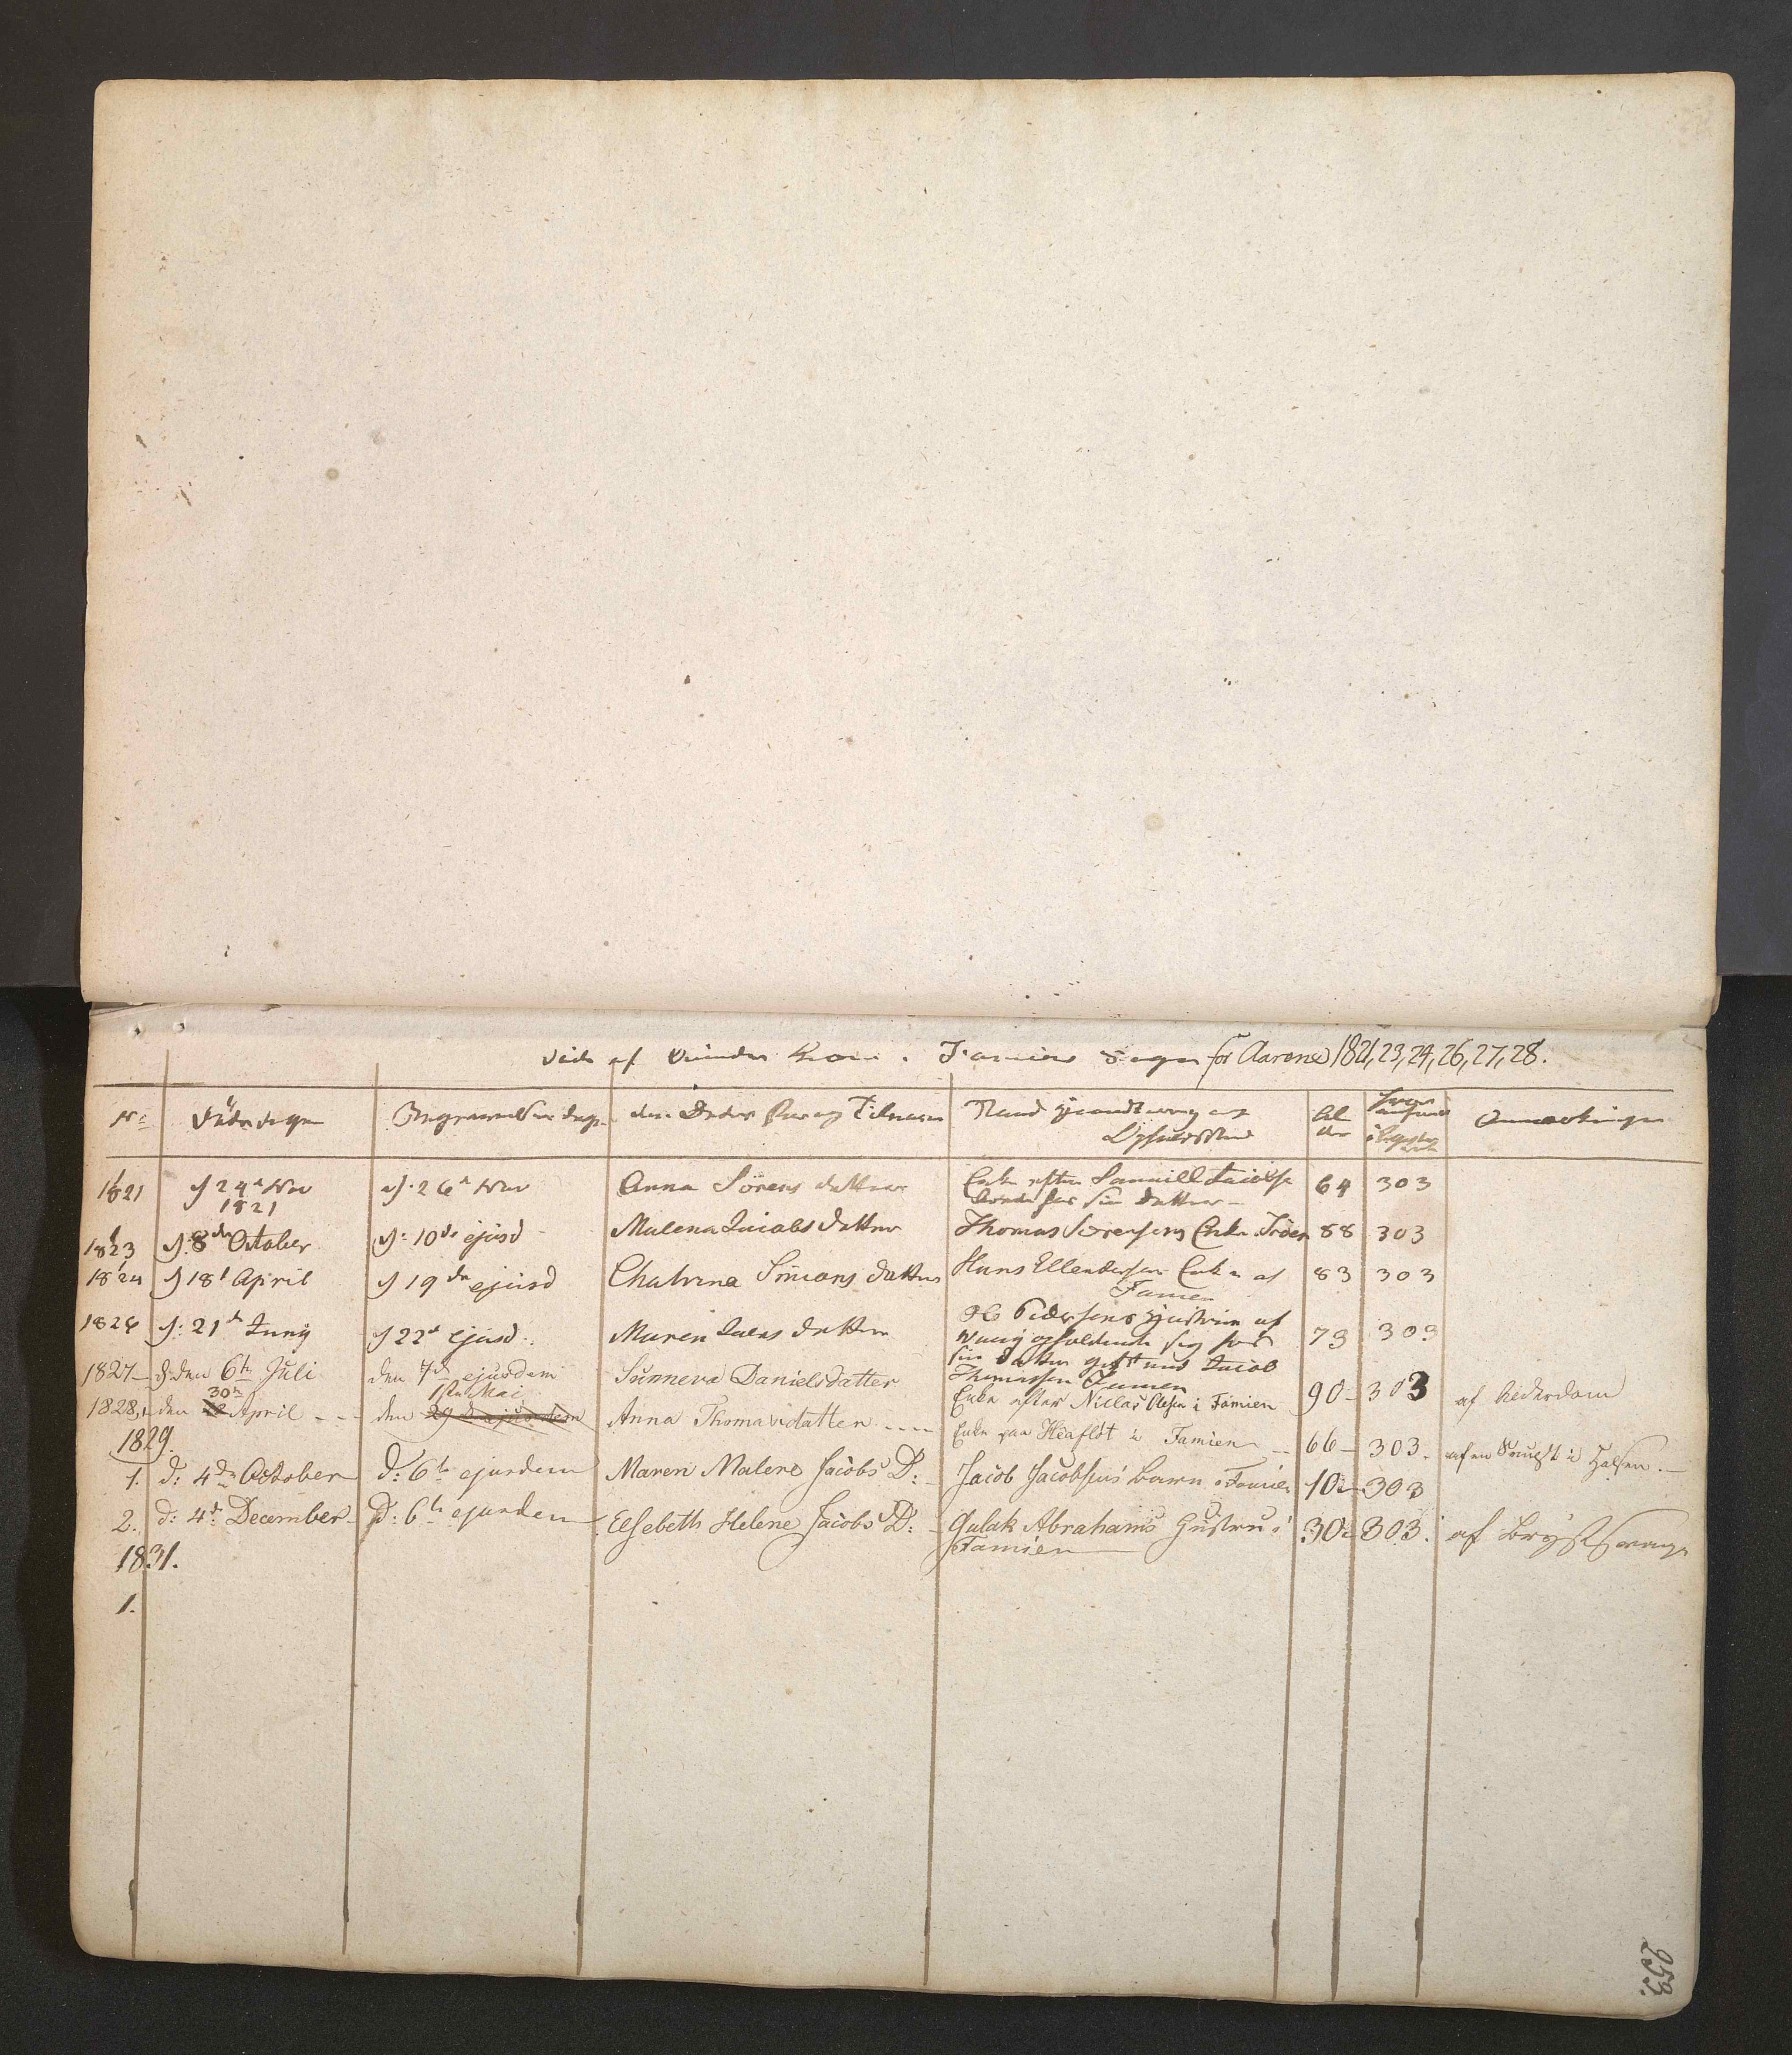 Døde af Qvinder Kiøn i Famiens Sogn for Aarene 1821, 23, 24, 26, 27, 28.
No Døds dagen Begravelses dage den Dødes For og Tilnavn Stand Haandtering og Opholdssted Al der i Anmerkninger
1821 1 d 24 Nov 1821 d. 26 Nov Anna Sörens datter Enke efter Jacobs hos sin datter 64 303
1823 1 d. 8de October d: 10de ejusd Malena Jacobs datter Thomas Sørensens Enke 88 303
1824 1 d 18 April d 19de ejusd Chatrina Simons datter Hans Ellendsen Enke af Famien 83 303
1826 d: 21 Juny d 22 ejusd. Maren datter Pedersens Hustrue af opholdende sig hos sin datter gift med Jacob Thomassen Famien 73 303
1827 den 6te Juli den 7de ejusdem Sunneva Danielsdatter Enke efter Niclas Olsen i Famien 90 - 303 af Alderdom
1828, 1 den 30te April --- den 1ste Mai 29de ejusdem Anna Thomasdatter ---- Enke paa i Famien -- 66 - 303. af en i Halsen. -
1829.
1. d: 4de October d: 6te ejusdem Maren Malene Jacobs D: Jacob Jacobsens Barn i Famien 10 303
2. d: 4de December - d: 6te ejusdem Elsebeth Helene Jacobs D: - Gulak Abrahams Hustru i Famien 30 303. af Brystsvage
1831.
1.
253.